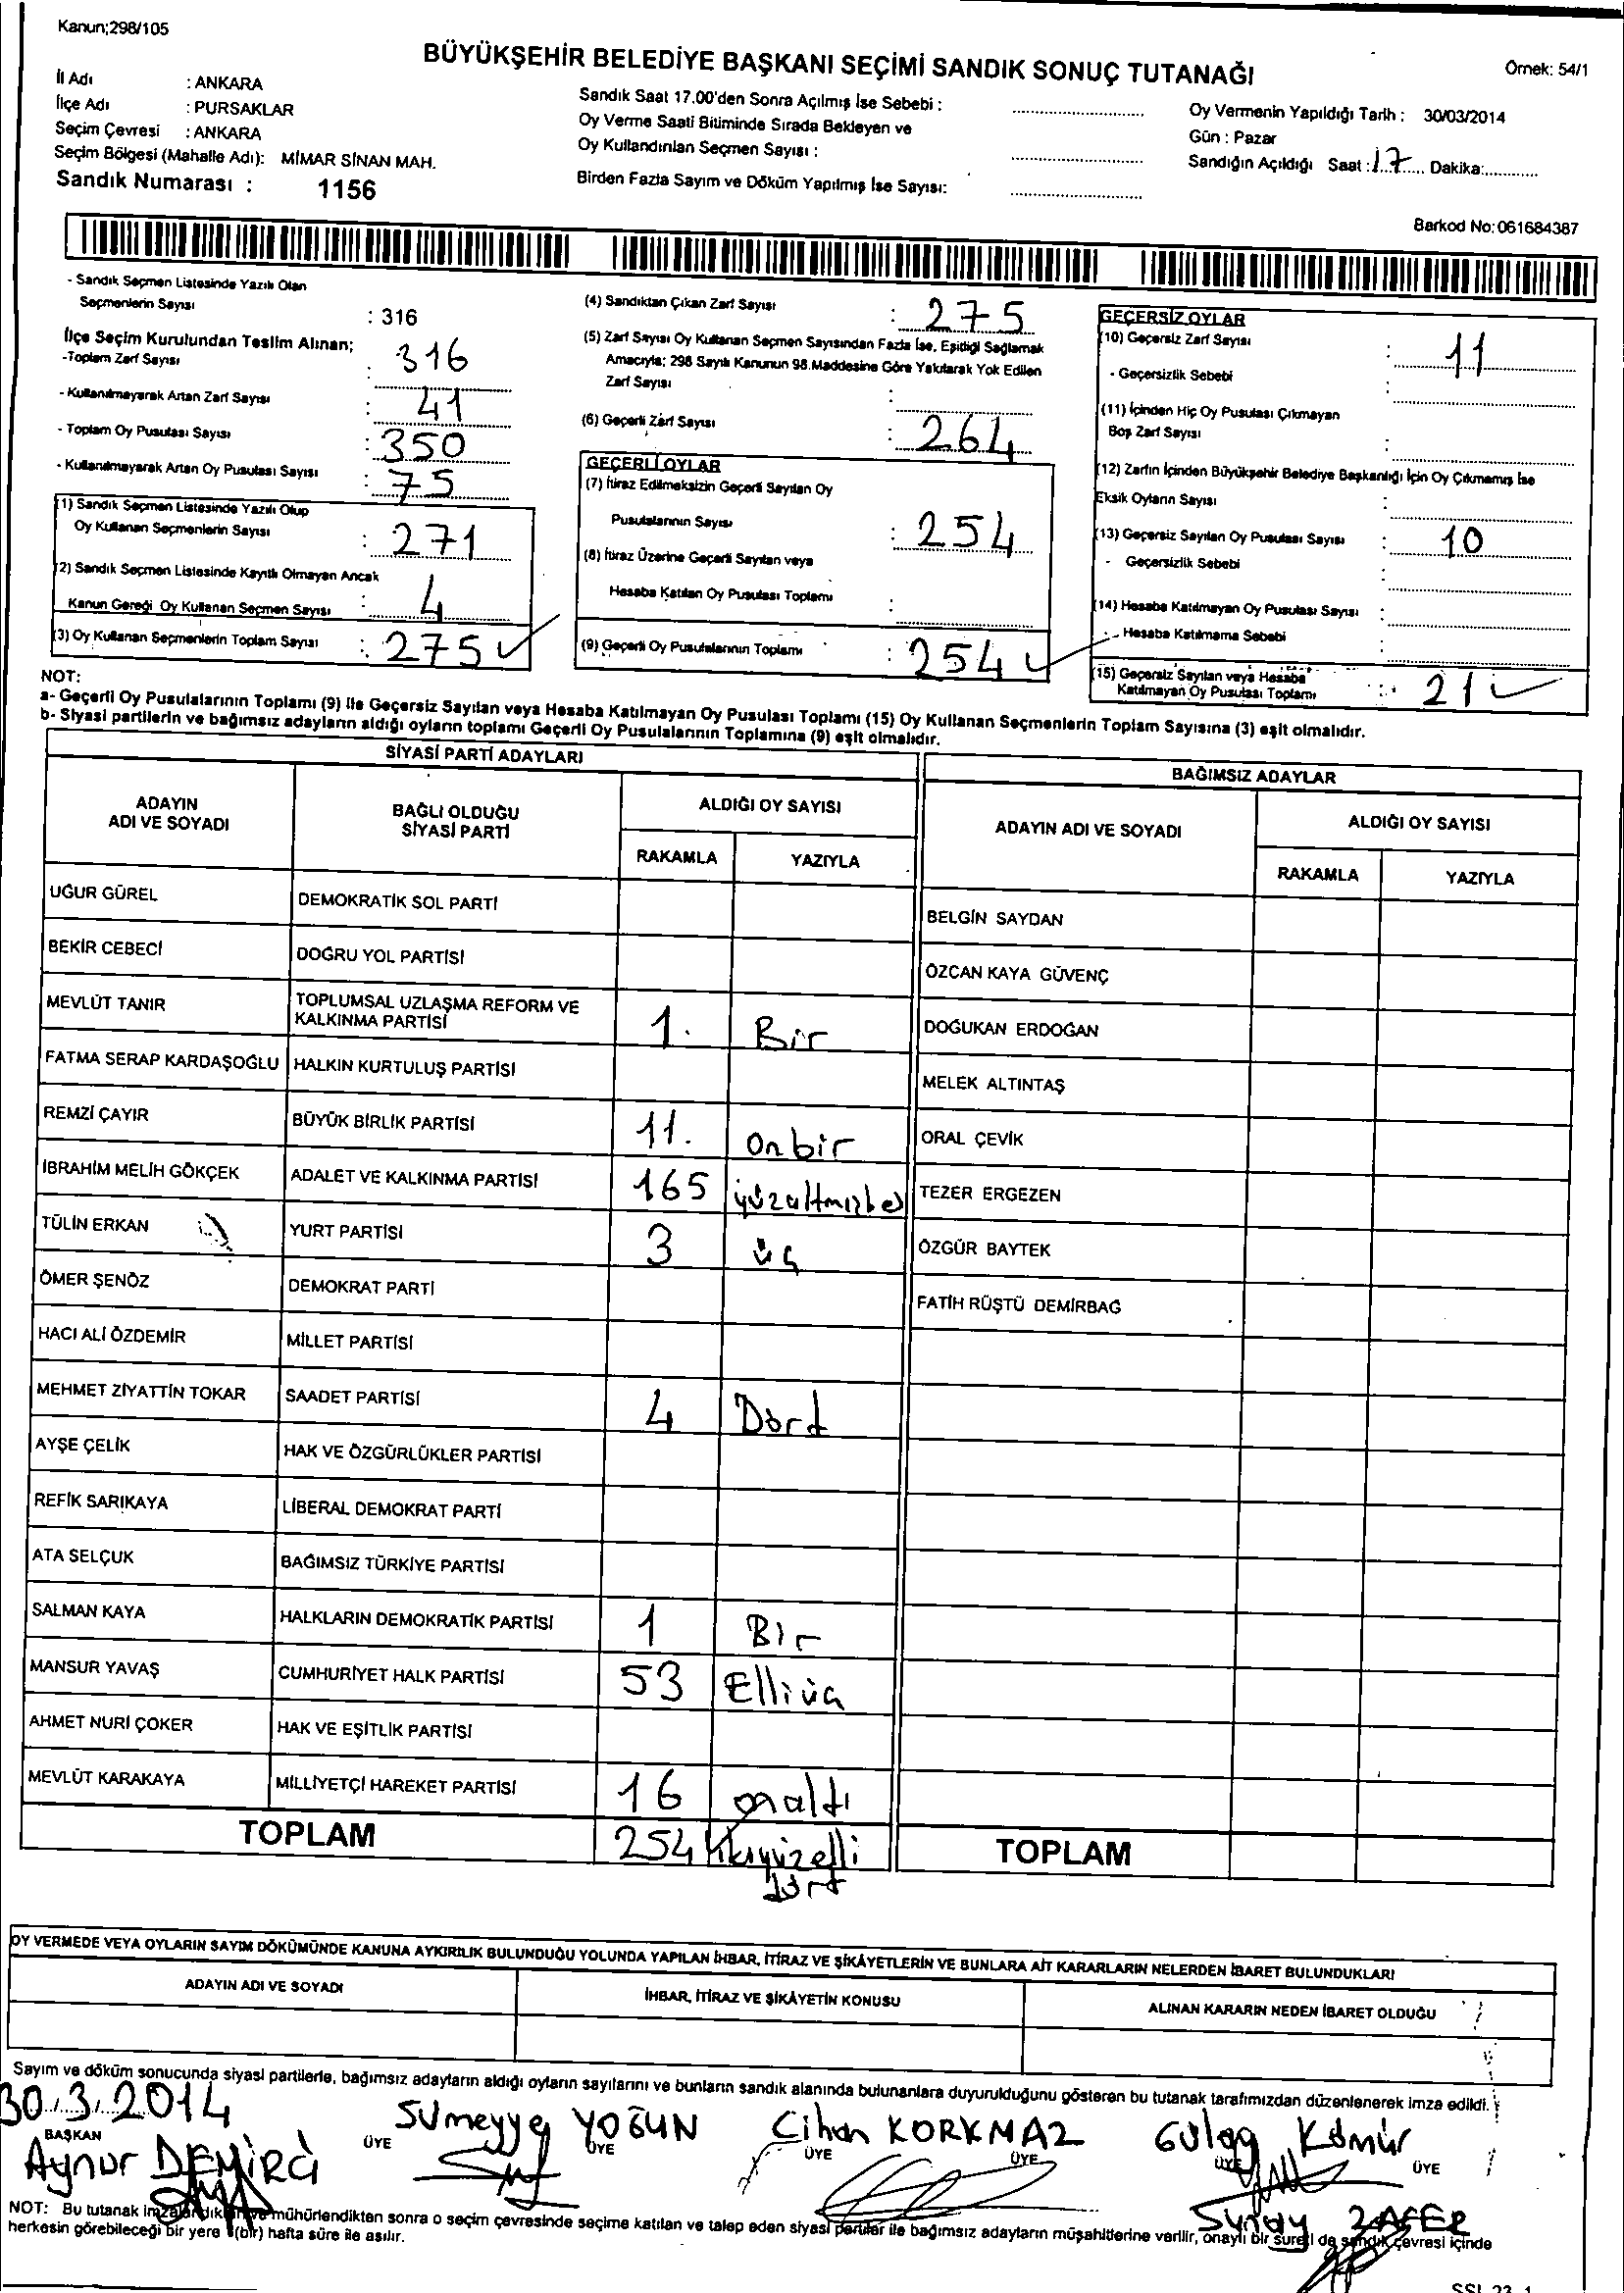 Kanun;298/105
BÜYÜKŞEHİR BELEDİYE BAŞKANI SEÇİMİ SANDIK SONUÇ TUTANAĞI
Örnek: 54/1
İl Adı : ANKARA
İlçe Adı : PURSAKLAR
Seçim Çevresi : ANKARA
Seçim Bölgesi (Mahalle Adı): MİMAR SİNAN MAH.
Sandık Numarası : 1156
Sandık Saat 17.00'den Sonra Açılmış İse Sebebi :
Oy Verme Saati Bitiminde Sırada Bekleyen ve
Oy Kullandırılan Seçmen Sayısı :
Birden Fazla Sayım ve Döküm Yapılmış İse Sayısı:
Oy Vermenin Yapıldığı Tarih : 30/03/2014
Gün : Pazar
Sandığın Açıldığı Saat : 17 Dakika:
Barkod No: 061684387
- Sandık Seçmen Listesinde Yazılı Olan
Seçmenlerin Sayısı : 316
İlçe Seçim Kurulundan Teslim Alınan;
-Toplam Zarf Sayısı : 316
- Kullanılmayarak Artan Zarf Sayısı : 41
- Toplam Oy Pusulası Sayısı : 350
- Kullanılmayarak Artan Oy Pusulası Sayısı : 75
(1) Sandık Seçmen Listesinde Yazılı Olup
Oy Kullanan Seçmenlerin Sayısı : 271
(2) Sandık Seçmen Listesinde Kayıtlı Olmayan Ancak
Kanun Gereği Oy Kullanan Seçmen Sayısı : 4
(3) Oy Kullanan Seçmenlerin Toplam Sayısı : 275
(4) Sandıktan Çıkan Zarf Sayısı : 275
(5) Zarf Sayısı Oy Kullanan Seçmen Sayısından Fazla İse, Eşitliği Sağlamak
Amacıyla; 298 Sayılı Kanunun 98.Maddesine Göre Yakılarak Yok Edilen
Zarf Sayısı :
(6) Geçerli Zarf Sayısı : 264
GEÇERLİ OYLAR
(7) İtiraz Edilmeksizin Geçerli Sayılan Oy
Pusulalarının Sayısı : 254
(8) İtiraz Üzerine Geçerli Sayılan veya
Hesaba Katılan Oy Pusulası Toplamı :
(9) Geçerli Oy Pusulalarının Toplamı : 254
GEÇERSİZ OYLAR
(10) Geçersiz Zarf Sayısı : 11
- Geçersizlik Sebebi :
(11) İçinden Hiç Oy Pusulası Çıkmayan
Boş Zarf Sayısı :
(12) Zarfın İçinden Büyükşehir Belediye Başkanlığı İçin Oy Çıkmamış İse
Eksik Oyların Sayısı :
(13) Geçersiz Sayılan Oy Pusulası Sayısı : 10
- Geçersizlik Sebebi :
(14) Hesaba Katılmayan Oy Pusulası Sayısı :
- Hesaba Katılmama Sebebi :
(15) Geçersiz Sayılan veya Hesaba
Katılmayan Oy Pusulası Toplamı : 21
NOT:
a- Geçerli Oy Pusulalarının Toplamı (9) ile Geçersiz Sayılan veya Hesaba Katılmayan Oy Pusulası Toplamı (15) Oy Kullanan Seçmenlerin Toplam Sayısına (3) eşit olmalıdır.
b- Siyasi partilerin ve bağımsız adayların aldığı oyların toplamı Geçerli Oy Pusulalarının Toplamına (9) eşit olmalıdır.
SİYASİ PARTİ ADAYLARI
ADAYIN ADI VE SOYADI
BAĞLI OLDUĞU SİYASİ PARTİ
ALDIĞI OY SAYISI
RAKAMLA YAZIYLA
UĞUR GÜREL DEMOKRATİK SOL PARTİ
BEKİR CEBECİ DOĞRU YOL PARTİSİ
MEVLÜT TANIR TOPLUMSAL UZLAŞMA REFORM VE KALKINMA PARTİSİ 1. Bir
FATMA SERAP KARDAŞOĞLU HALKIN KURTULUŞ PARTİSİ
REMZİ ÇAYIR BÜYÜK BİRLİK PARTİSİ 11. onbir
İBRAHİM MELİH GÖKÇEK ADALET VE KALKINMA PARTİSİ 165 yüzaltmışbeş
TÜLİN ERKAN YURT PARTİSİ 3 üç
ÖMER ŞENÖZ DEMOKRAT PARTİ
HACI ALİ ÖZDEMİR MİLLET PARTİSİ
MEHMET ZİYATTİN TOKAR SAADET PARTİSİ 4 Dört
AYŞE ÇELİK HAK VE ÖZGÜRLÜKLER PARTİSİ
REFİK SARIKAYA LİBERAL DEMOKRAT PARTİ
ATA SELÇUK BAĞIMSIZ TÜRKİYE PARTİSİ
SALMAN KAYA HALKLARIN DEMOKRATİK PARTİSİ 1 Bir
MANSUR YAVAŞ CUMHURİYET HALK PARTİSİ 53 Elliüç
AHMET NURİ ÇOKER HAK VE EŞİTLİK PARTİSİ
MEVLÜT KARAKAYA MİLLİYETÇİ HAREKET PARTİSİ 16 onaltı
TOPLAM 254 ikiyüzelli dört
BAĞIMSIZ ADAYLAR
ADAYIN ADI VE SOYADI
ALDIĞI OY SAYISI
RAKAMLA YAZIYLA
BELGİN SAYDAN
ÖZCAN KAYA GÜVENÇ
DOĞUKAN ERDOĞAN
MELEK ALTINTAŞ
ORAL ÇEVİK
TEZER ERGEZEN
ÖZGÜR BAYTEK
FATİH RÜŞTÜ DEMİRBAĞ
TOPLAM
OY VERMEDE VEYA OYLARIN SAYIM DÖKÜMÜNDE KANUNA AYKIRILIK BULUNDUĞU YOLUNDA YAPILAN İHBAR, İTİRAZ VE ŞİKÂYETLERİN VE BUNLARA AİT KARARLARIN NELERDEN İBARET BULUNDUKLARI
ADAYIN ADI VE SOYADI
İHBAR, İTİRAZ VE ŞİKÂYETİN KONUSU
ALINAN KARARIN NEDEN İBARET OLDUĞU
Sayım ve döküm sonucunda siyasi partilerle, bağımsız adayların aldığı oyların sayılarını ve bunların sandık alanında bulunanlara duyurulduğunu gösteren bu tutanak tarafımızdan düzenlenerek imza edildi.
30.3.2014
BAŞKAN ÜYE ÜYE ÜYE ÜYE ÜYE ÜYE
Aynur DEMİRCİ Sümeyye YOĞUN Cihan KORKMAZ Gülay Kömür
Sunay ZAFER
NOT: Bu tutanak imzalandıktan ve mühürlendikten sonra o seçim çevresinde seçime katılan ve talep eden siyasi partiler ile bağımsız adayların müşahitlerine verilir, onaylı bir sureti de sandık çevresi içinde
herkesin görebileceği bir yere 1(bir) hafta süre ile asılır.